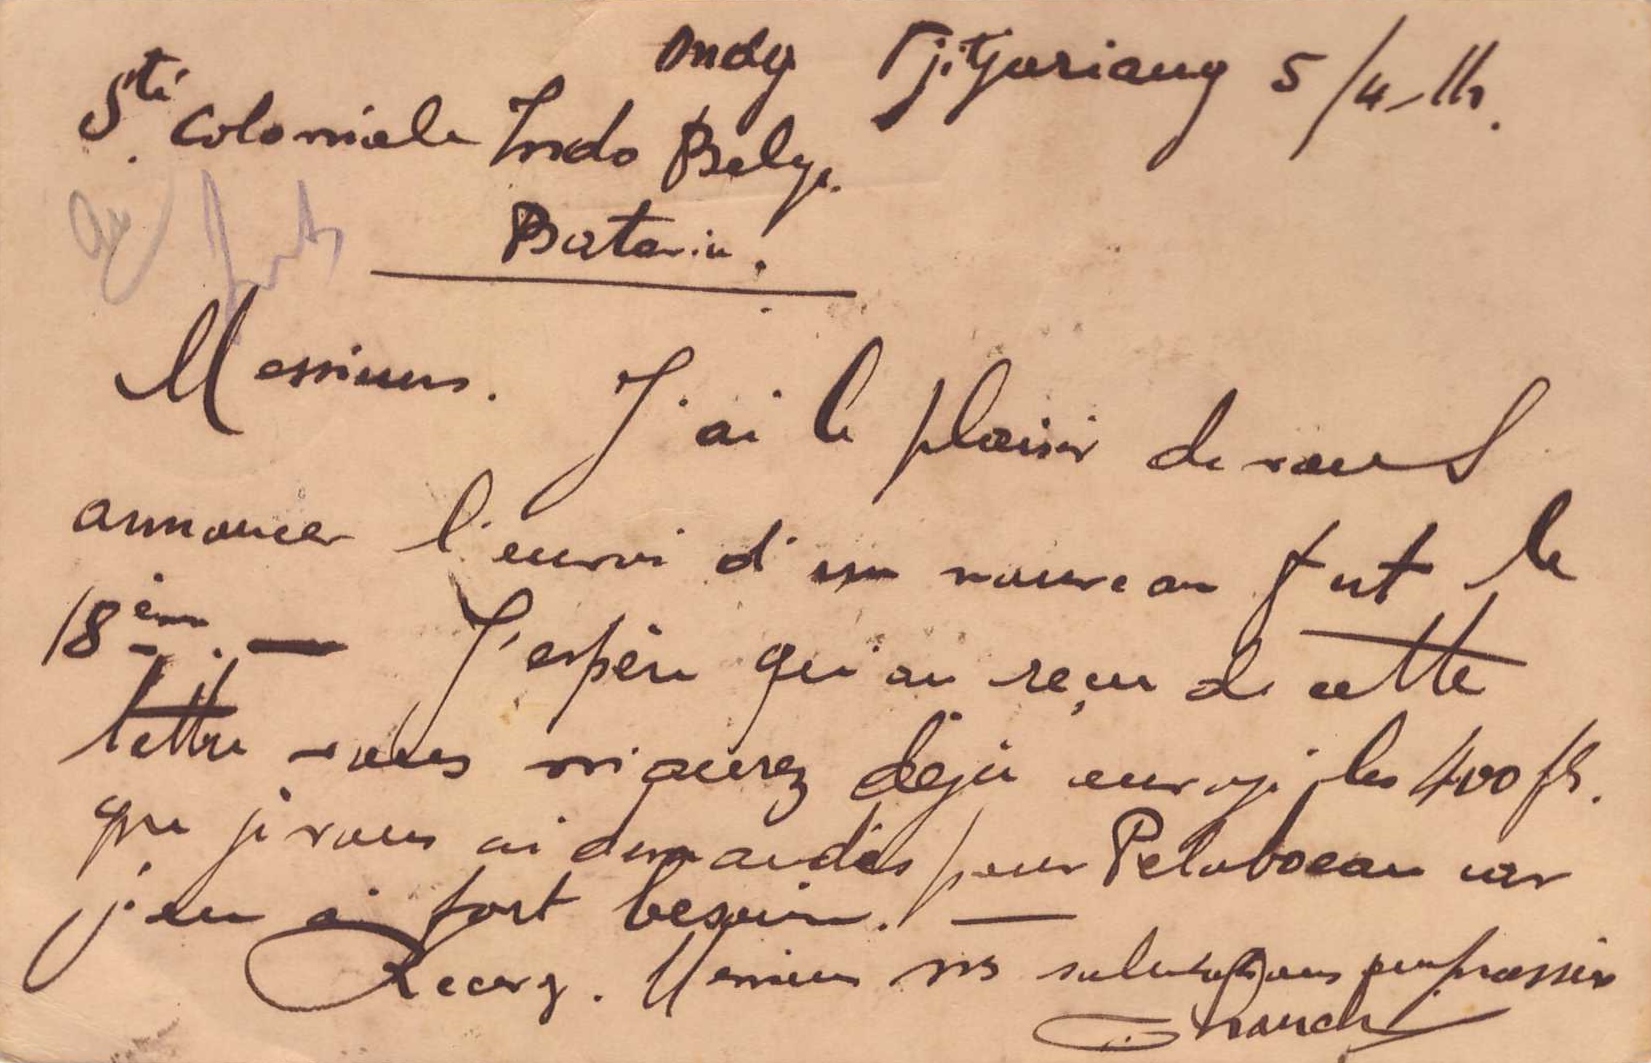 Ondg Tjitjoeriang 5/4-16.
Sté Coloniale Indo Belge.
Batavia.
Messieurs. J'ai le plaisir de vous
annoncer l'envoi d'un nouveau fut le
18ème. — J'espère qu'au reçu de cette
lettre vous m'aurez déjà envoyé les 400 fls.
que je vous ai demandés pour Pelaboean car
j'en ai fort besoin. —
Recevez. Messieurs mes salutations empressées